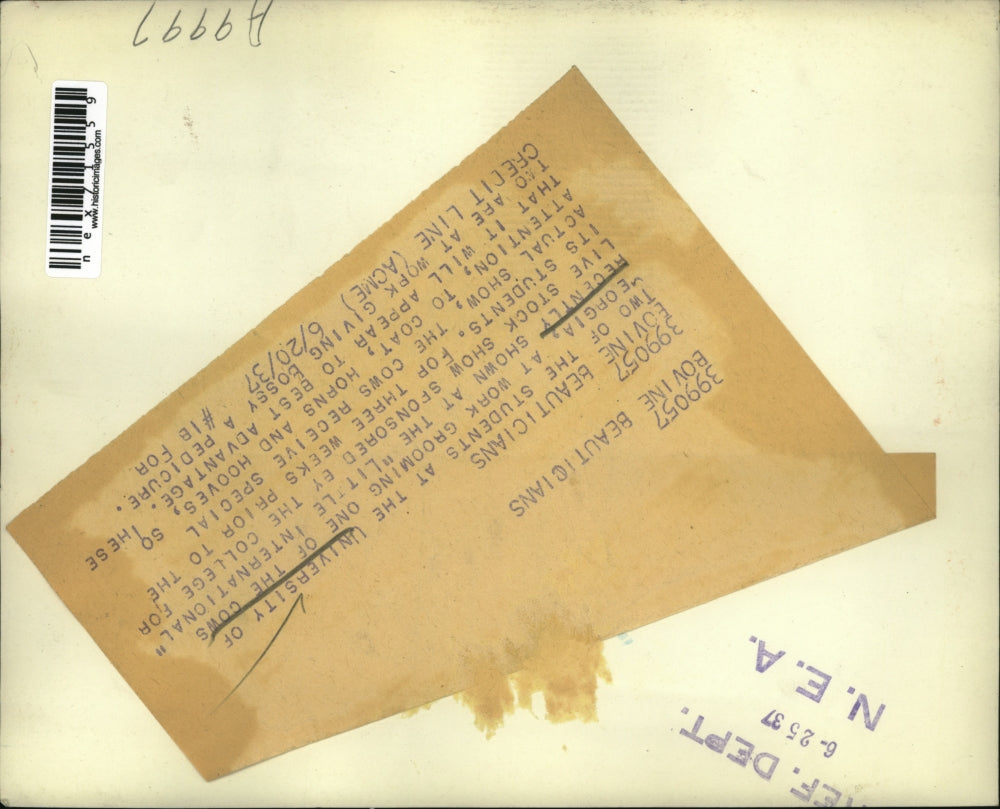 A9997
www.historicimages.com
399057
BOVINE BEAUTICIANS
399057
BOVINE BEAUTICIANS
TWO OF THE STUDENTS AT THE UNIVERSITY OF
GEORGIA, AT WORK GROOMING ONE OF THE COWS
RECENTLY SHOWN AT THE "LITTLE INTERNATIONAL"
LIVE STOCK SHOW SPONSORED BY THE COLLEGE FOR
ITS STUDENTS. FOR THREE WEEKS PRIOR TO THE
ACTUAL SHOW, THE COWS RECEIVE SPECIAL
ATTENTION, TO COAT, HORNS AND HOOVES, SO
THAT IT WILL APPEAR TO BEST ADVANTAGE. THESE
TWO ARE AT WORK GIVING BOSSY A PEDICURE.
CREDIT LINE (ACME) 6/20/37 #1B FOR
REF. DEPT.
6-25 37
N. E. A.